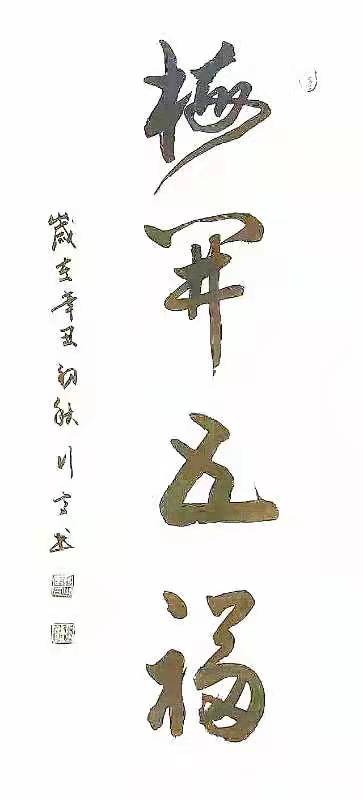 梅開五福
歲在辛丑初秋川雪书